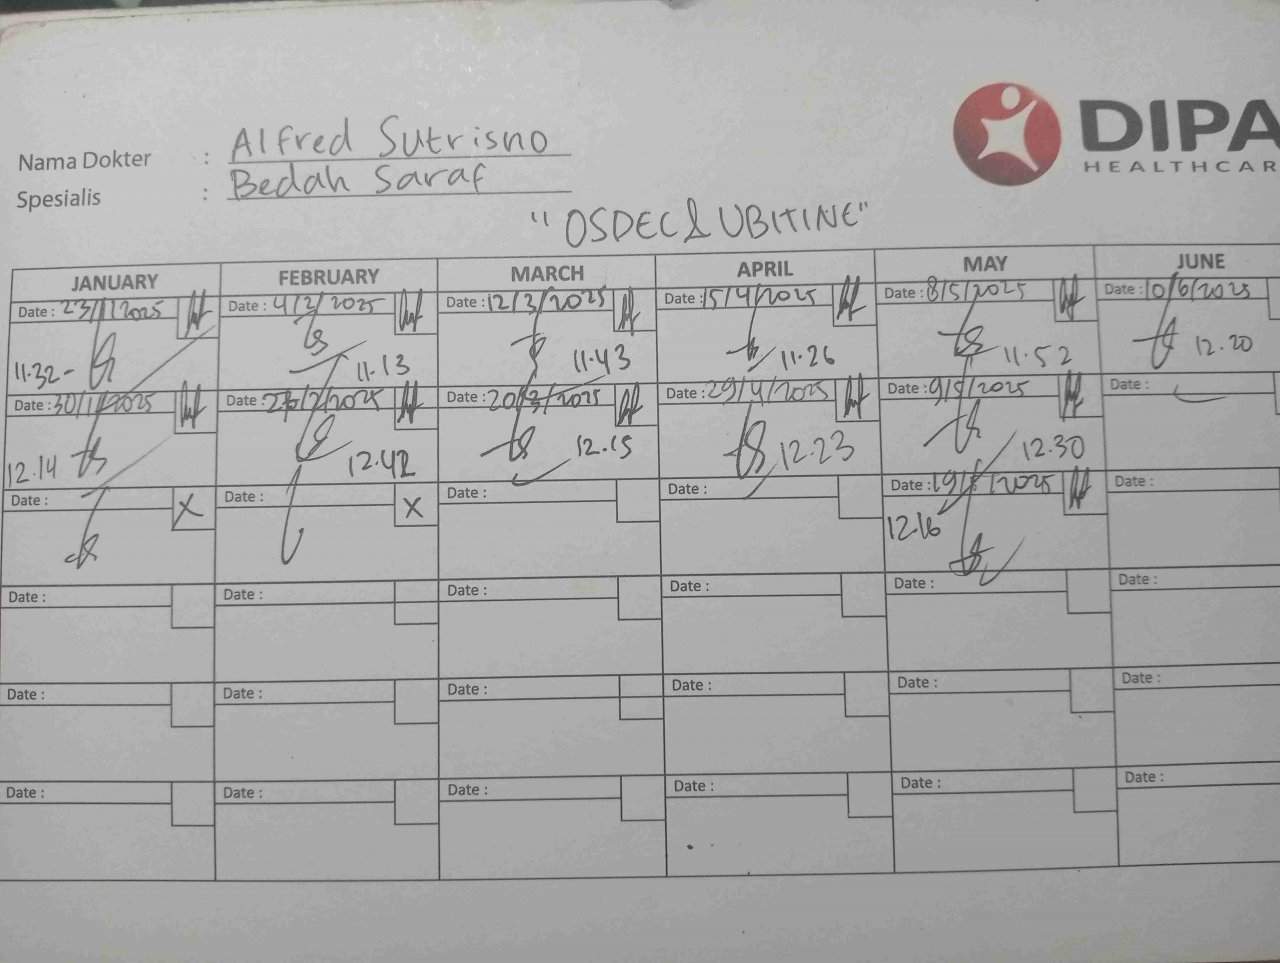 Nama Dokter : Alfred Sutrisno
Spesialis : Bedah Saraf
DIPA
HEALTHCAR
"OSDEC & UBITINE"
JANUARY FEBRUARY MARCH APRIL MAY JUNE
Date : 23/1/2025 Date : 4/2/2025 Date : 12/3/2025 Date : 15/4/2025 Date : 8/5/2025 Date : 10/6/2025
11.32- 11.13 11.43 11.26 11.52 12.20
Date : 30/1/2025 Date : /2/2025 Date : 20/3/2025 Date : 29/4/2025 Date : 9/5/2025 Date :
12.14 12.42 12.15 12.23 12.30
Date : X Date : X Date : Date : Date : 19/5/2025 Date :
12.16
Date : Date : Date : Date : Date : Date :
Date : Date : Date : Date : Date : Date :
Date : Date : Date : Date : Date : Date :